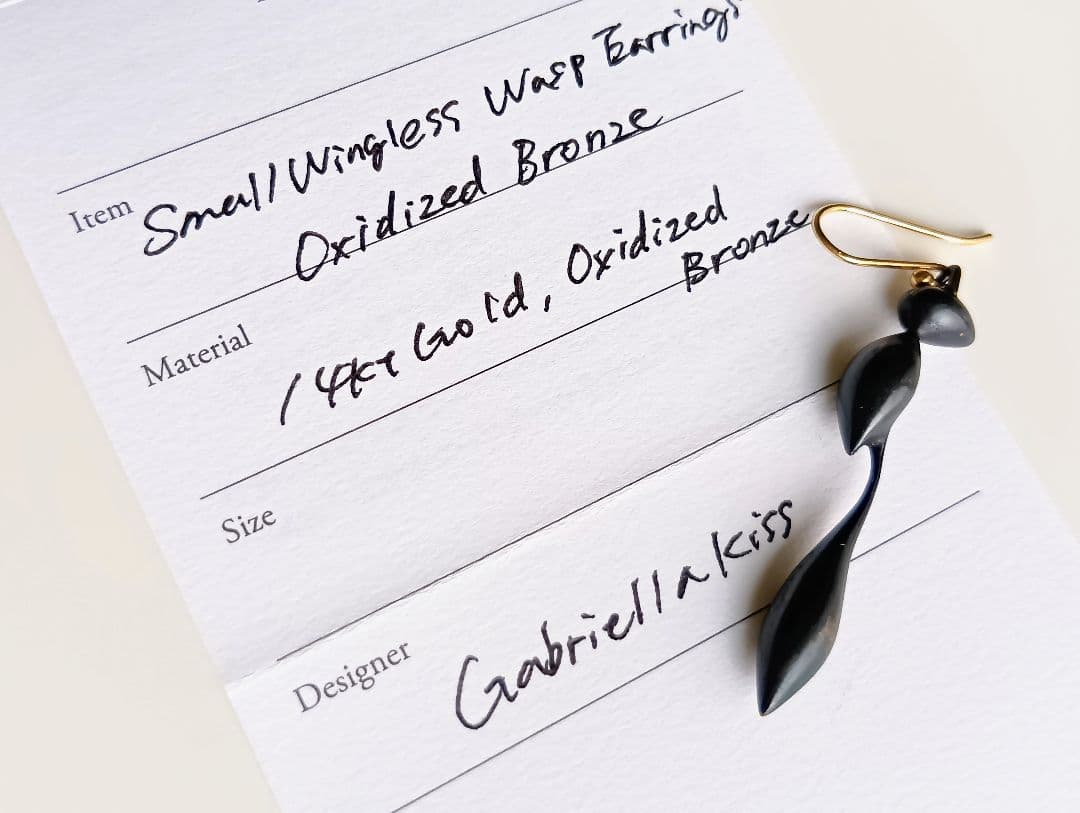 Item Small Wingless Wasp Earrings
Oxidized Bronze
Material 14kt Gold, Oxidized
Bronze
Size
Designer Gabriella kiss